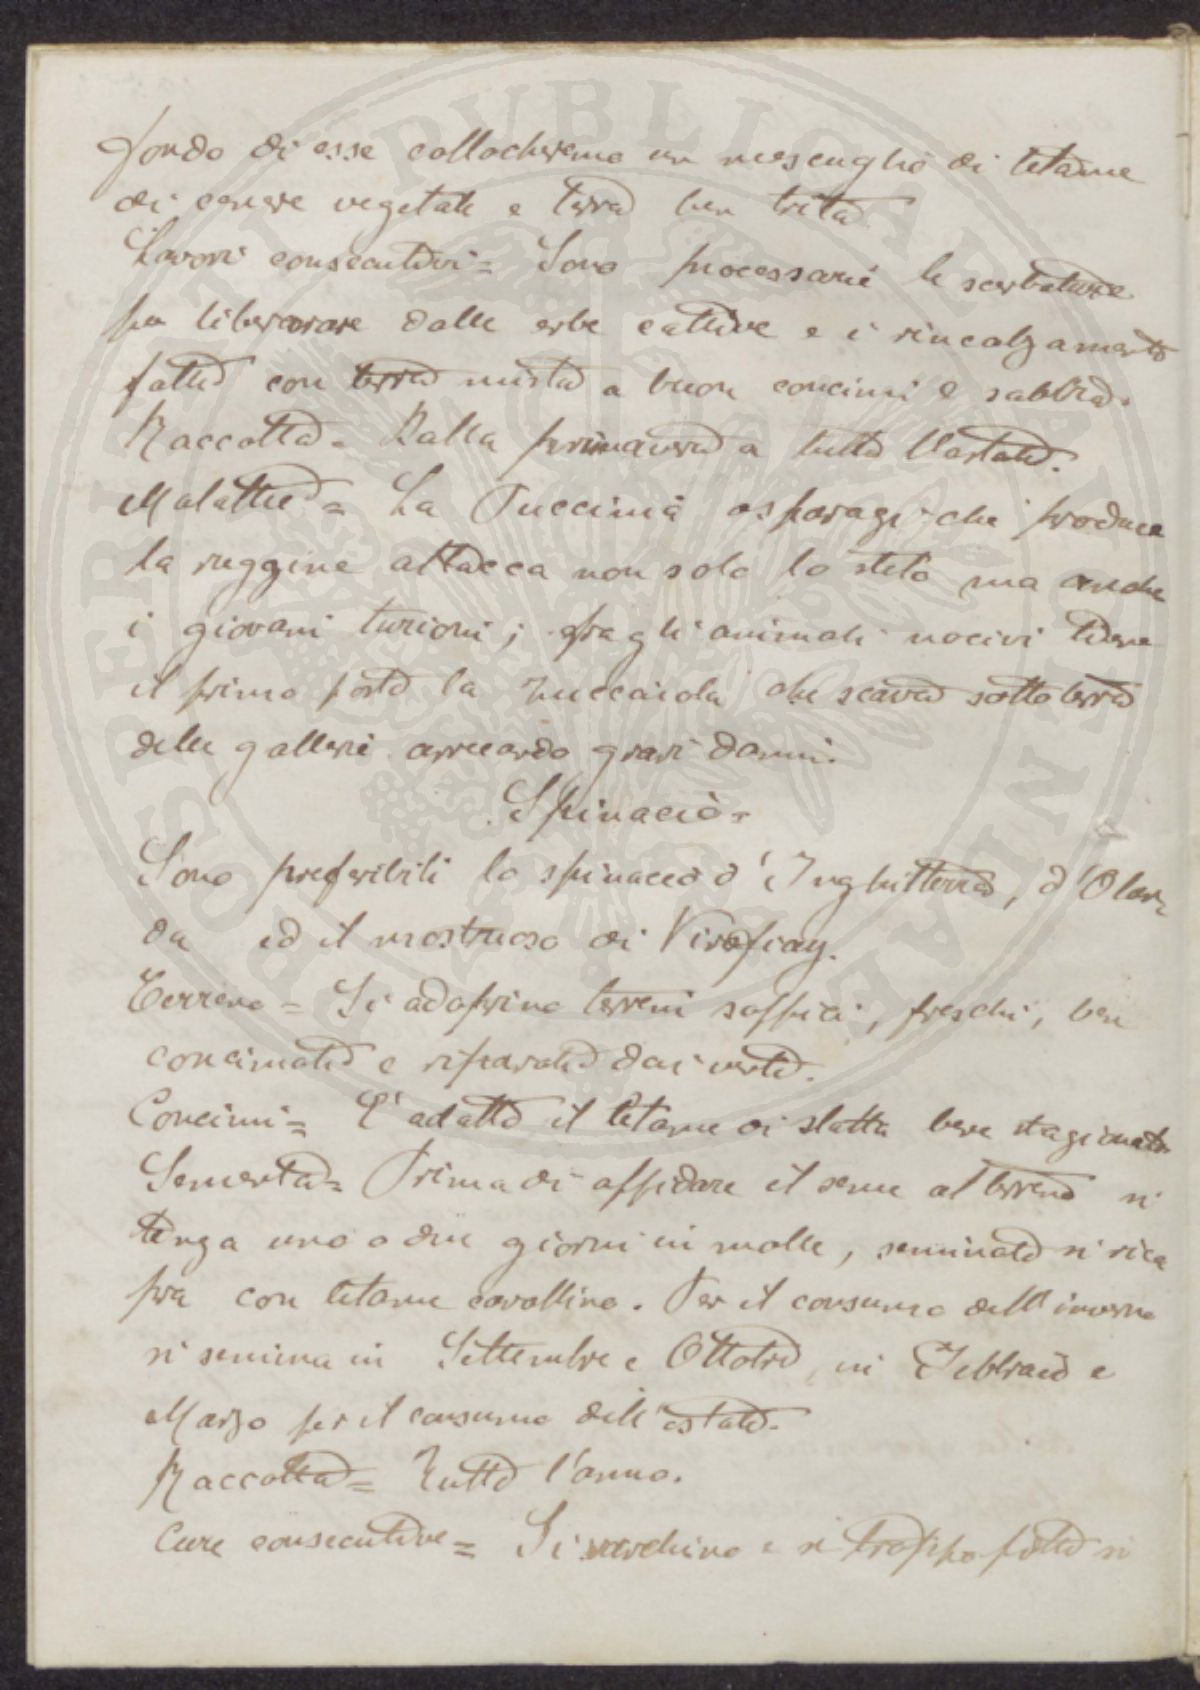 fondo di esse collocheremo un mescuglio di letame
di cenere vegetale e terra ben trita
Lavori consecutivi = Sono necessarie le scerbature
per liberarare dalle erbe cattive e i rincalzamenti
fatti con terra mista a buon concimi e sabbia.
Raccolta = Dalla primavera a tutta l'estate.
Malattie = La Puccinia asparagi che produce
la ruggine attacca non solo lo stelo ma anche
i giovani turioni; fra gli animali nocivi tiene
il primo posto la zuccaiola che scava sotto terra
delle gallerie arrecando gravi danni.
Spinacio =
Sono preferibili lo spinacio d'Inghilterra, d'Olan=
da ed il mostruoso di Viroflay.
Terreno = Si adoprino terreni soffici, freschi, ben
concimati e riparati dai venti.
Concimi = È adatto il letame di stalla bene stagionato
Sementa = Prima di affidare il seme al terreno si
tenga uno o due giorni in molle, seminato si rico
pra con letame cavallino. Per il consumo dell'inverno
si semina in Settembre e Ottobre, in Febbraio e
Marzo per il consumo dell'estate.
Raccolta = Tutto l'anno.
Cure consecutive = Si sarchino e si troppo fitti si
PVBLICAE
PROSPERITATIS